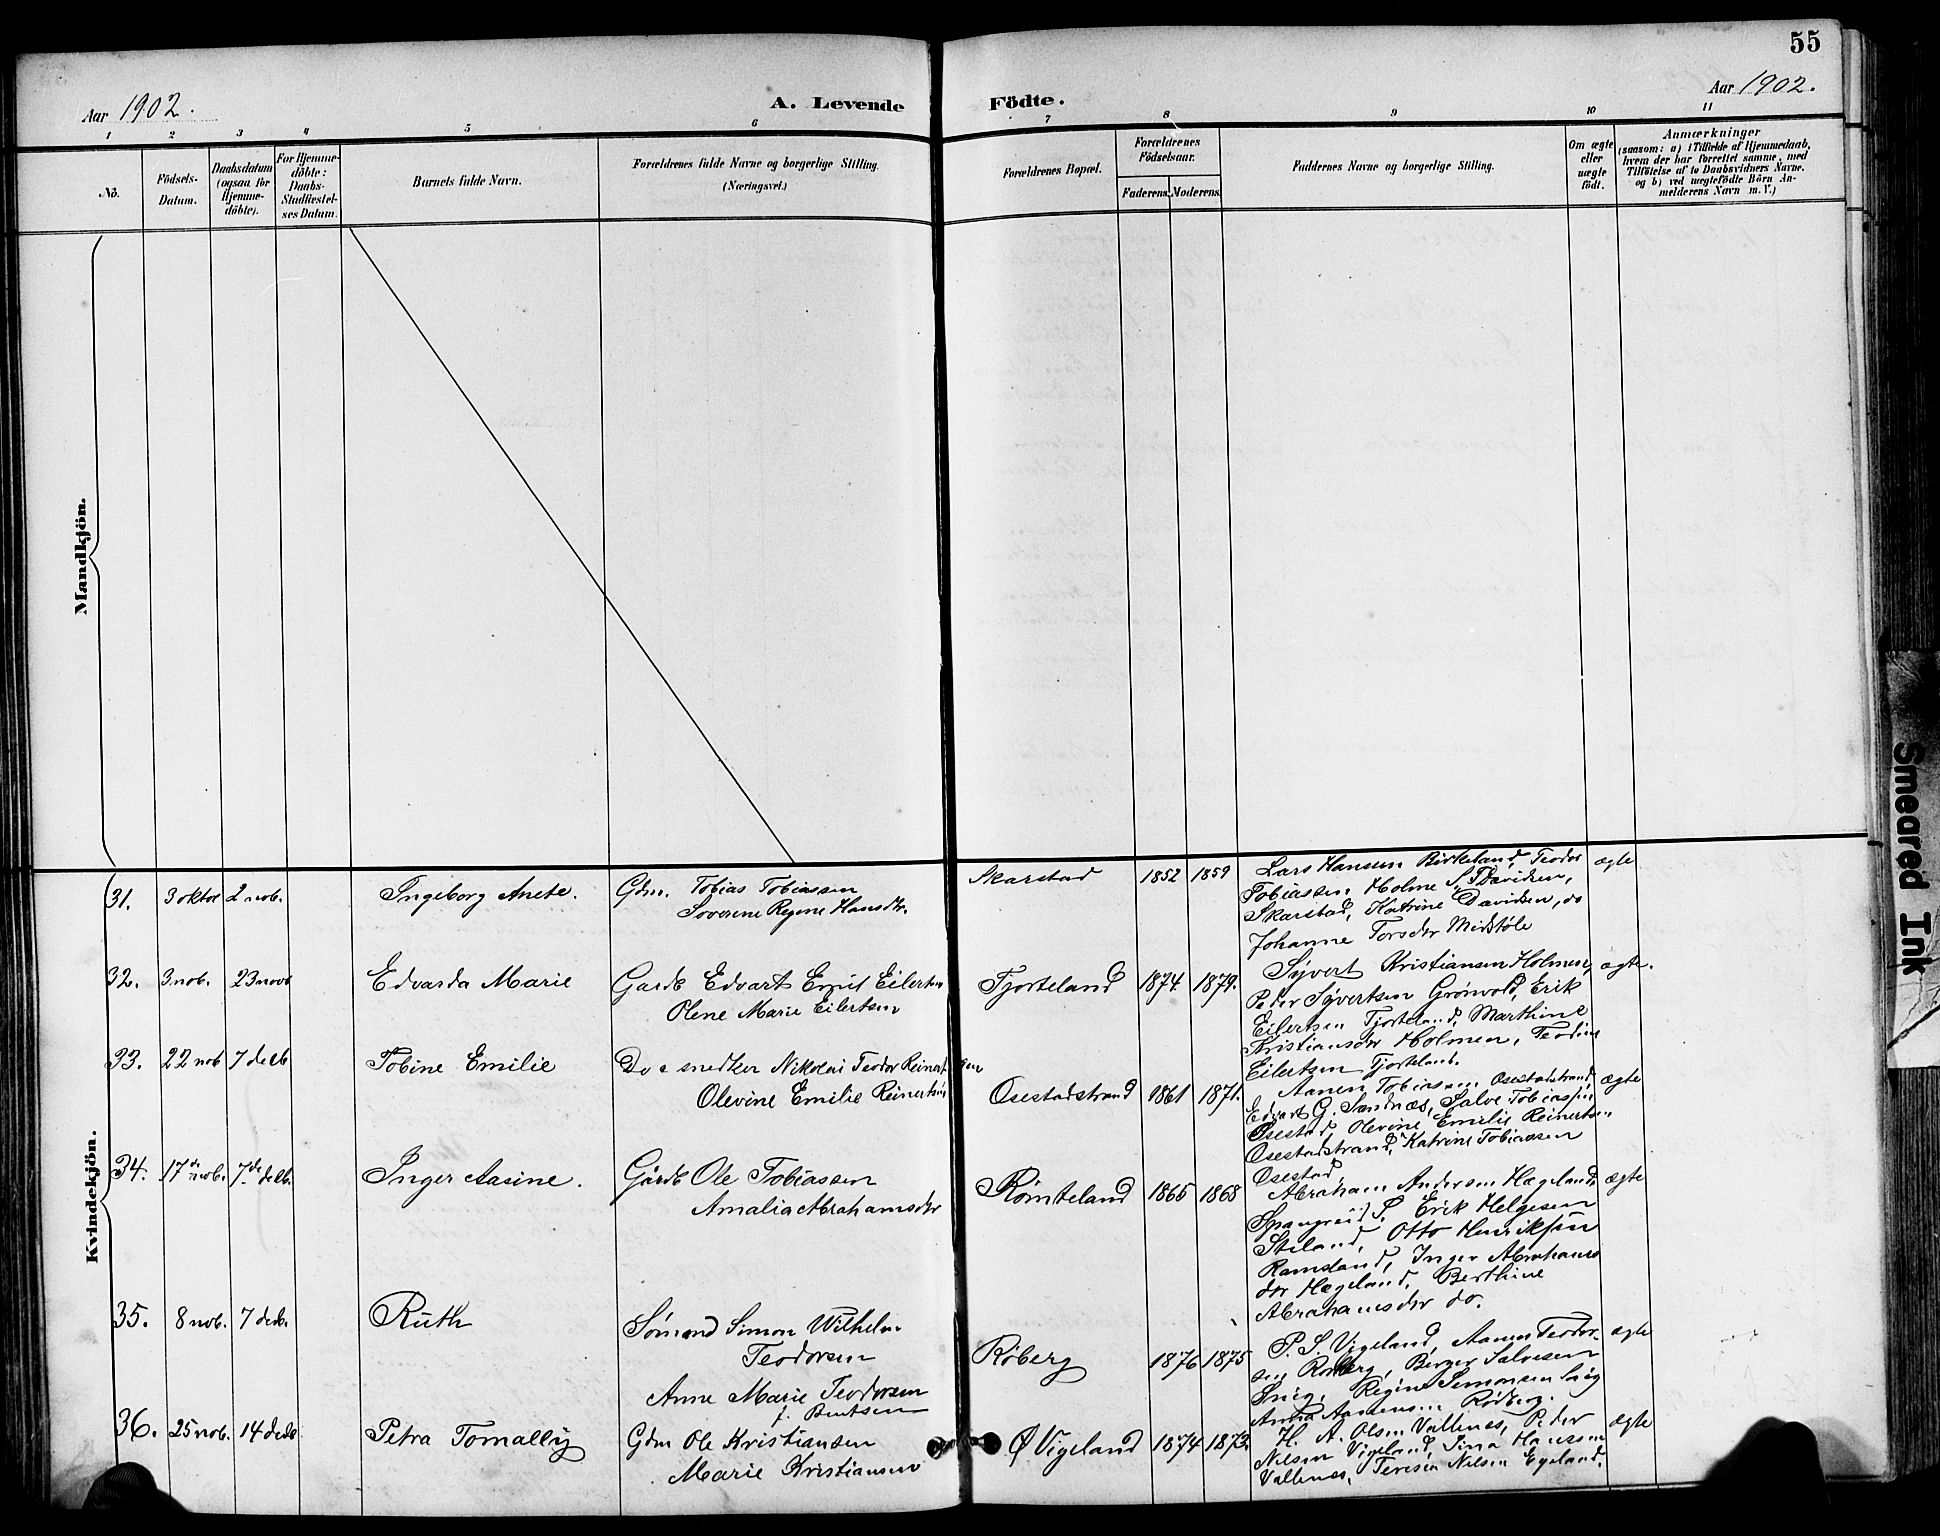 55
Aar 1902.
A. Levende Födte.
Aar 1902.
1 2 3 4 5 6 7 8 9 10 11
No.
Födsels-
Datum.
Daabsdatum
(ogsaa for
Hjemme-
döbte).
For Hjemme-
döbte:
Daabs-
Stadfæstel-
ses Datum.
Barnets fulde Navn.
Forældrenes fulde Navne og borgerlige Stilling.
(Næringsvei.)
Forældrenes Bopæl.
Forældrenes
Födselsaar.
Faderens. Moderens.
Faddernes Navne og borgerlige Stilling.
Om ægte
eller
uægte
födt.
Anmærkninger
(saasom: a) i Tilfælde af Hjemmedaab,
hvem der har forrettet samme, med
Tilföielse af to Daabsvidners Navne.
og b) ved uægtefödte Börn An-
melderens Navn m. V.)
Mandkjön.
Kvindekjön.
31. 3 oktor 2 nob. Ingeborg Anete. Gdm. Tobias Tobiassen
Soverine Regine Hansdtr.
Skarstad 1852 1859
Lars Hansen Birkeland, Teodor
Tobiassen Holme S. T. Davidsen,
Skarstad, Katrine Davidsen, do
Johanne Torsdtr Midtböle
ægte
32. 3 nob. 23 novb Edvarda Marie Gardb Edvart Emil Eilertsen
Olene Marie Eilertsen
Tjorteland 1874 1879.
Syvert Kristiansen Holmen,
Peder Syvertsen Grönvold, Erik
Eilertsen Tjorteland, Marthine
Kristiansdtr Holmen, Teodine
Eilertsen Tjorteland.
ægte.
33. 22 nob 7 decb. Tobine Emilie Do e snedker Nikolai Teodor Reinertsen
Olevine Emilie Reinertsen
Osestadstrand 1861 1871.
Aanen Tobiassen Osestadstrand,
Edvart G. Sandnæs, Salve Tobiassen
Osestad, Olevine Emilie Reinertsen
Osestadstrand, Katrine Tobiassen
Osestad
ægte
34. 17de nob. 7de decb. Inger Aasine. Gårdb Ole Tobiassen
Amalia Abrahamsdtr
Römteland 1865 1868
Abraham Andersen Hægeland,
Spangreid S. Erik Helgesen
Stiland, Otto Henriksen
Ramsland, Inger Abrahams
dtr Hægeland, Berthine
Abrahamsdtr do.
ægte
35. 8 nob. 7 decb. Ruth Sömand Simon Wilhelm
Teodorsen
Anne Marie Teodorsen
f. Bentsen
Röberg 1876 1875
P. S. Vigeland, Aanen Teodor-
sen Röberg, Berger Salvesen
Snig, Regine Simonsen Snig
Anna Aanensen Rödberg.
ægte
36. 25 nob. 14 decb Petra Tomally Gdm Ole Kristiansen
Marie Kristiansen
Ø Vigeland 1874 1873.
H. A. Olsen Vallenes, Peder
Nilsen Vigeland, Sina Hanssen
Vallenes, Teresen Nilsen Egeland.
ægte
Smeared Ink